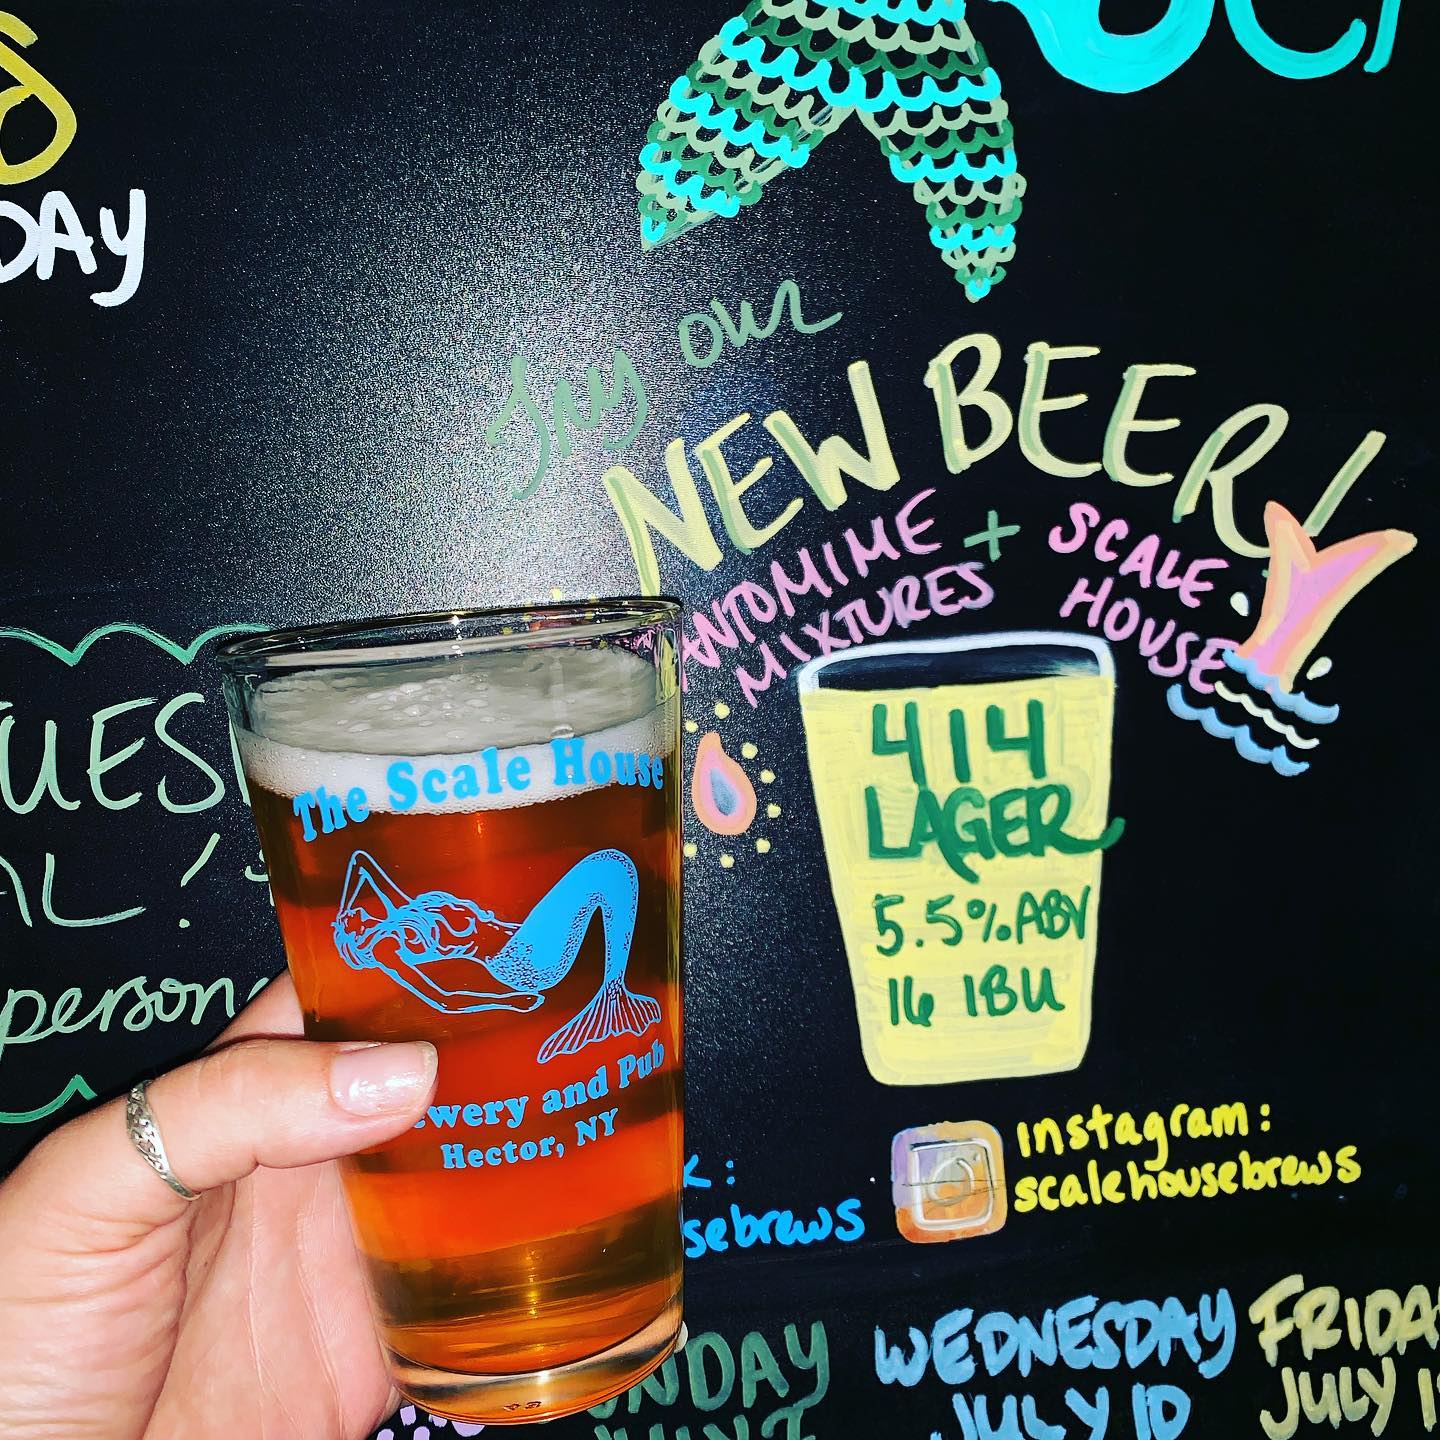 DAY
Try our
NEW BEER!
ANTOMIME + SCALE
MIXTURES HOUSE
414
LAGER
5.5% ABV
16 IBU
TUES
AL!
person
The Scale House
ewery and Pub
Hector, NY
K:
sebrews
instagram:
scalehousebrews
NDAY
WEDNESDAY
JULY 10
FRIDA
JULY 1